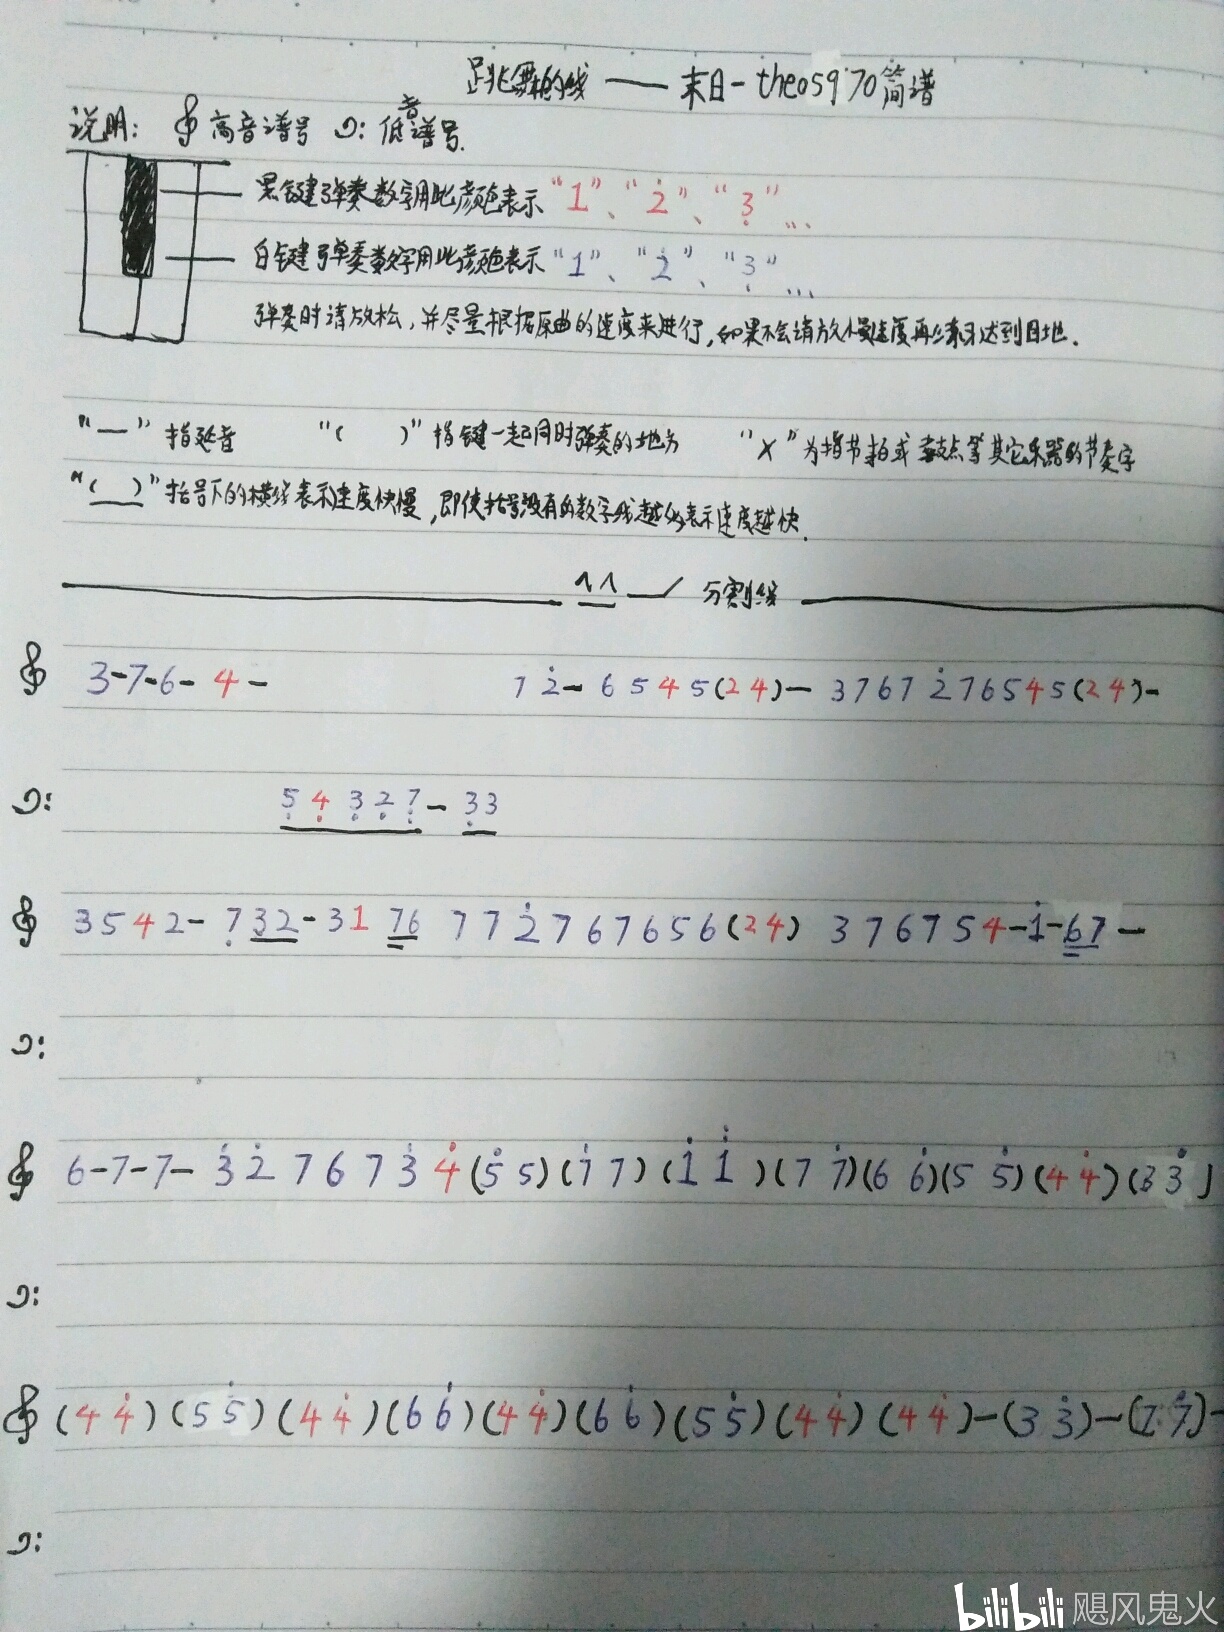 跳舞的线——末日-theo5970简谱
说明: 𝄞 高音谱号 𝄢 低音谱号.
黑键弹奏数字用此颜色表示“1”、“2̇”、“3̣”...
白键弹奏数字用此颜色表示“1”、“2̇”、“3̣”...
弹奏时请放松,并尽量根据原曲的速度来进行,如果不会请放慢速度再练习达到目地.
“—”指延音 “( )”指键一起同时弹奏的地方 “×”为指节拍或鼓点等其它乐器的节奏字
“(__)”括号下的横线表示速度快慢,即使括号没有的数字线越多表示速度越快.
^^ 分割线
𝄞 3-7-6-4- 7 2̇- 6 5 4 5(2 4)- 3 7 6 7 2̇ 7 6 5 4 5(2 4)-
𝄢 5̣ 4̣ 3̣ 2̣ 7̣- 3̣3
𝄞 3 5 4 2- 7̣ 32-31 76 7 7 2̇ 7 6 7 6 5 6(24) 3 7 6 7 5 4-1̇-67-
𝄢
𝄞 6-7-7- 3̇ 2̇ 7 6 7 3̇ 4̇ (5̇ 5)(1̇ 7)(1̇ 1̇)(7 7̇)(6 6̇)(5 5̇)(4 4̇)(3 3̇)
𝄢
𝄞 (4 4̇)(5 5̇)(4 4̇)(6 6̇)(4 4̇)(6 6̇)(5 5̇)(4 4̇)(4 4̇)-(3 3̇)-(7 7̇)-
𝄢
bilibili 飓风鬼火